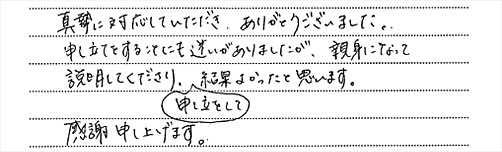 真摯に対応していただき、ありがとうございました。
申し立てをすることにも迷いがありましたが、親身になって
説明してくださり、結果よかったと思います。
申し立をして
感謝申し上げます。